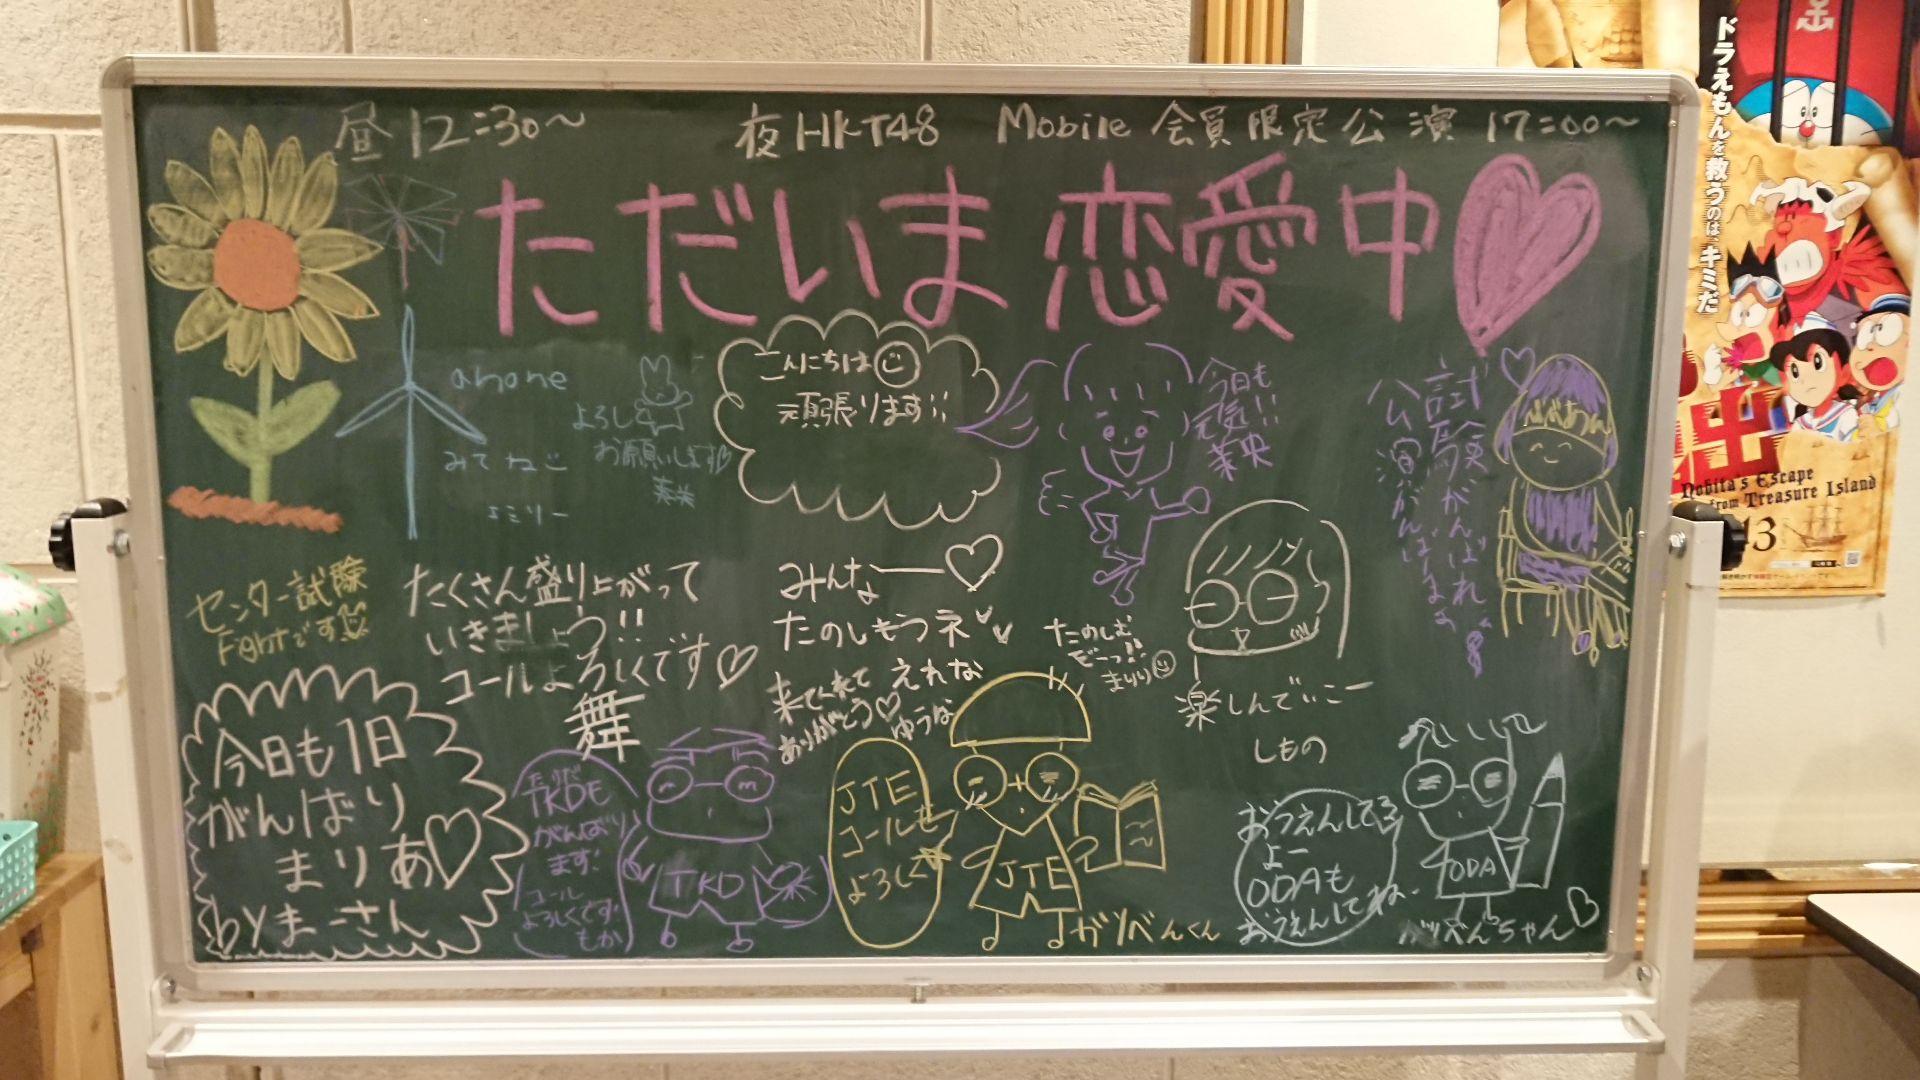 昼 12:30～
夜 HKT48 Mobile 会員限定公演 17:00～
ただいま恋愛中
anone
みてねご
よろしく
お願いします
こんにちは
頑張ります!!
今日も
元気!!
菜央
試験がんばれ
公演がんばるよ
センター試験
Fightです
たくさん盛り上がって
いきましょう!!
コールよろしくです
舞
みんなー
たのしもうネ
来てくれて
ありがとう
えれな
ゆうな
たのしむ
ぞーっ!!
まりり
楽しんでいこー
しもの
今日も1日
がんばり
まりあ
byまーさん
TKDE
がんばり
ます!
コール
よろしくです!
もか
TKD
JTE
コールも
よろしく
JTE
ガリべんくん
おうえんしてろ
よー
ODAも
おうえんしてね
ODA
ガリべんちゃん
ドラえもんを救うのは、キミだ
Nobita's Escape
from Treasure Island